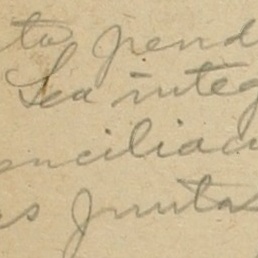 to pend
Sea integ
enciliac
s Juntas